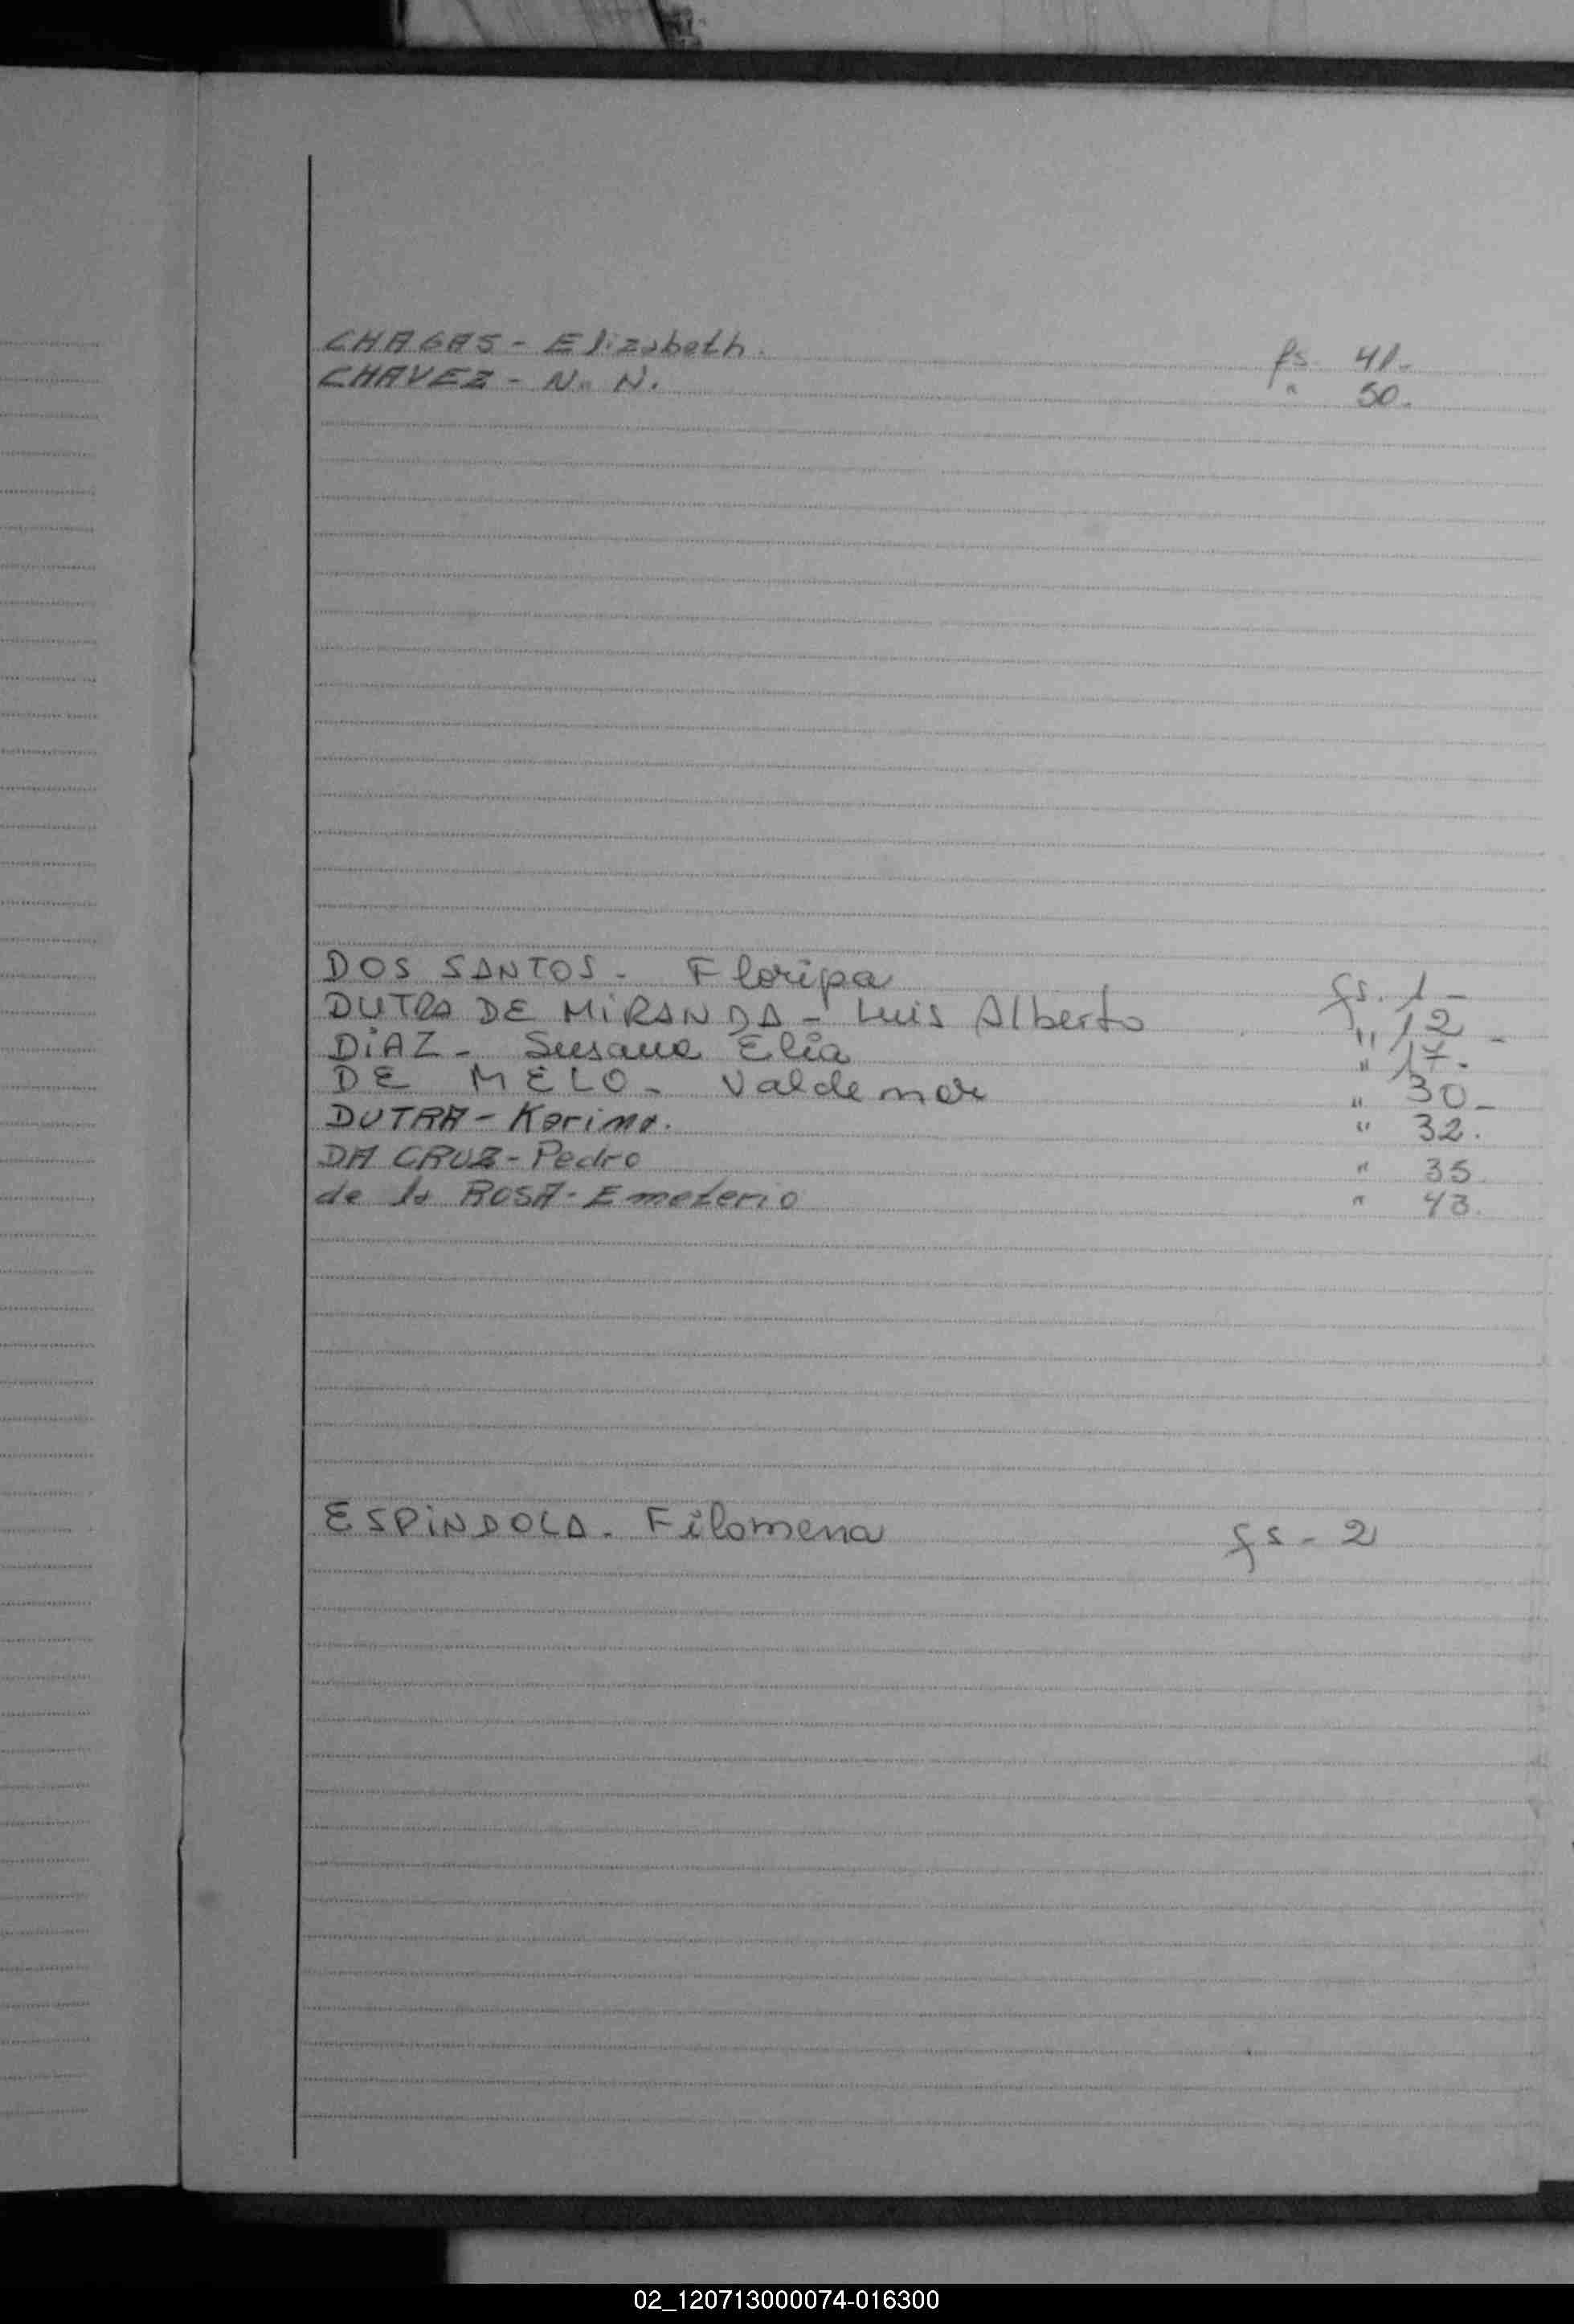 CHAGAS - Elizabeth. fs. 41.-
CHAVEZ - N. N. " 50.
DOS SANTOS - Floripa fs. 1 -
DUTRA DE MiRANDA - Luis Alberto " 12 -
DiAZ - Susana Elia " 17.
DE MELO - Valdemar " 30 -
DUTRA - Karina. " 32.
DA CRUZ - Pedro " 35
de la ROSA - Emeterio " 43.
ESPiNDOLA - Filomena fs - 2
02_120713000074-016300